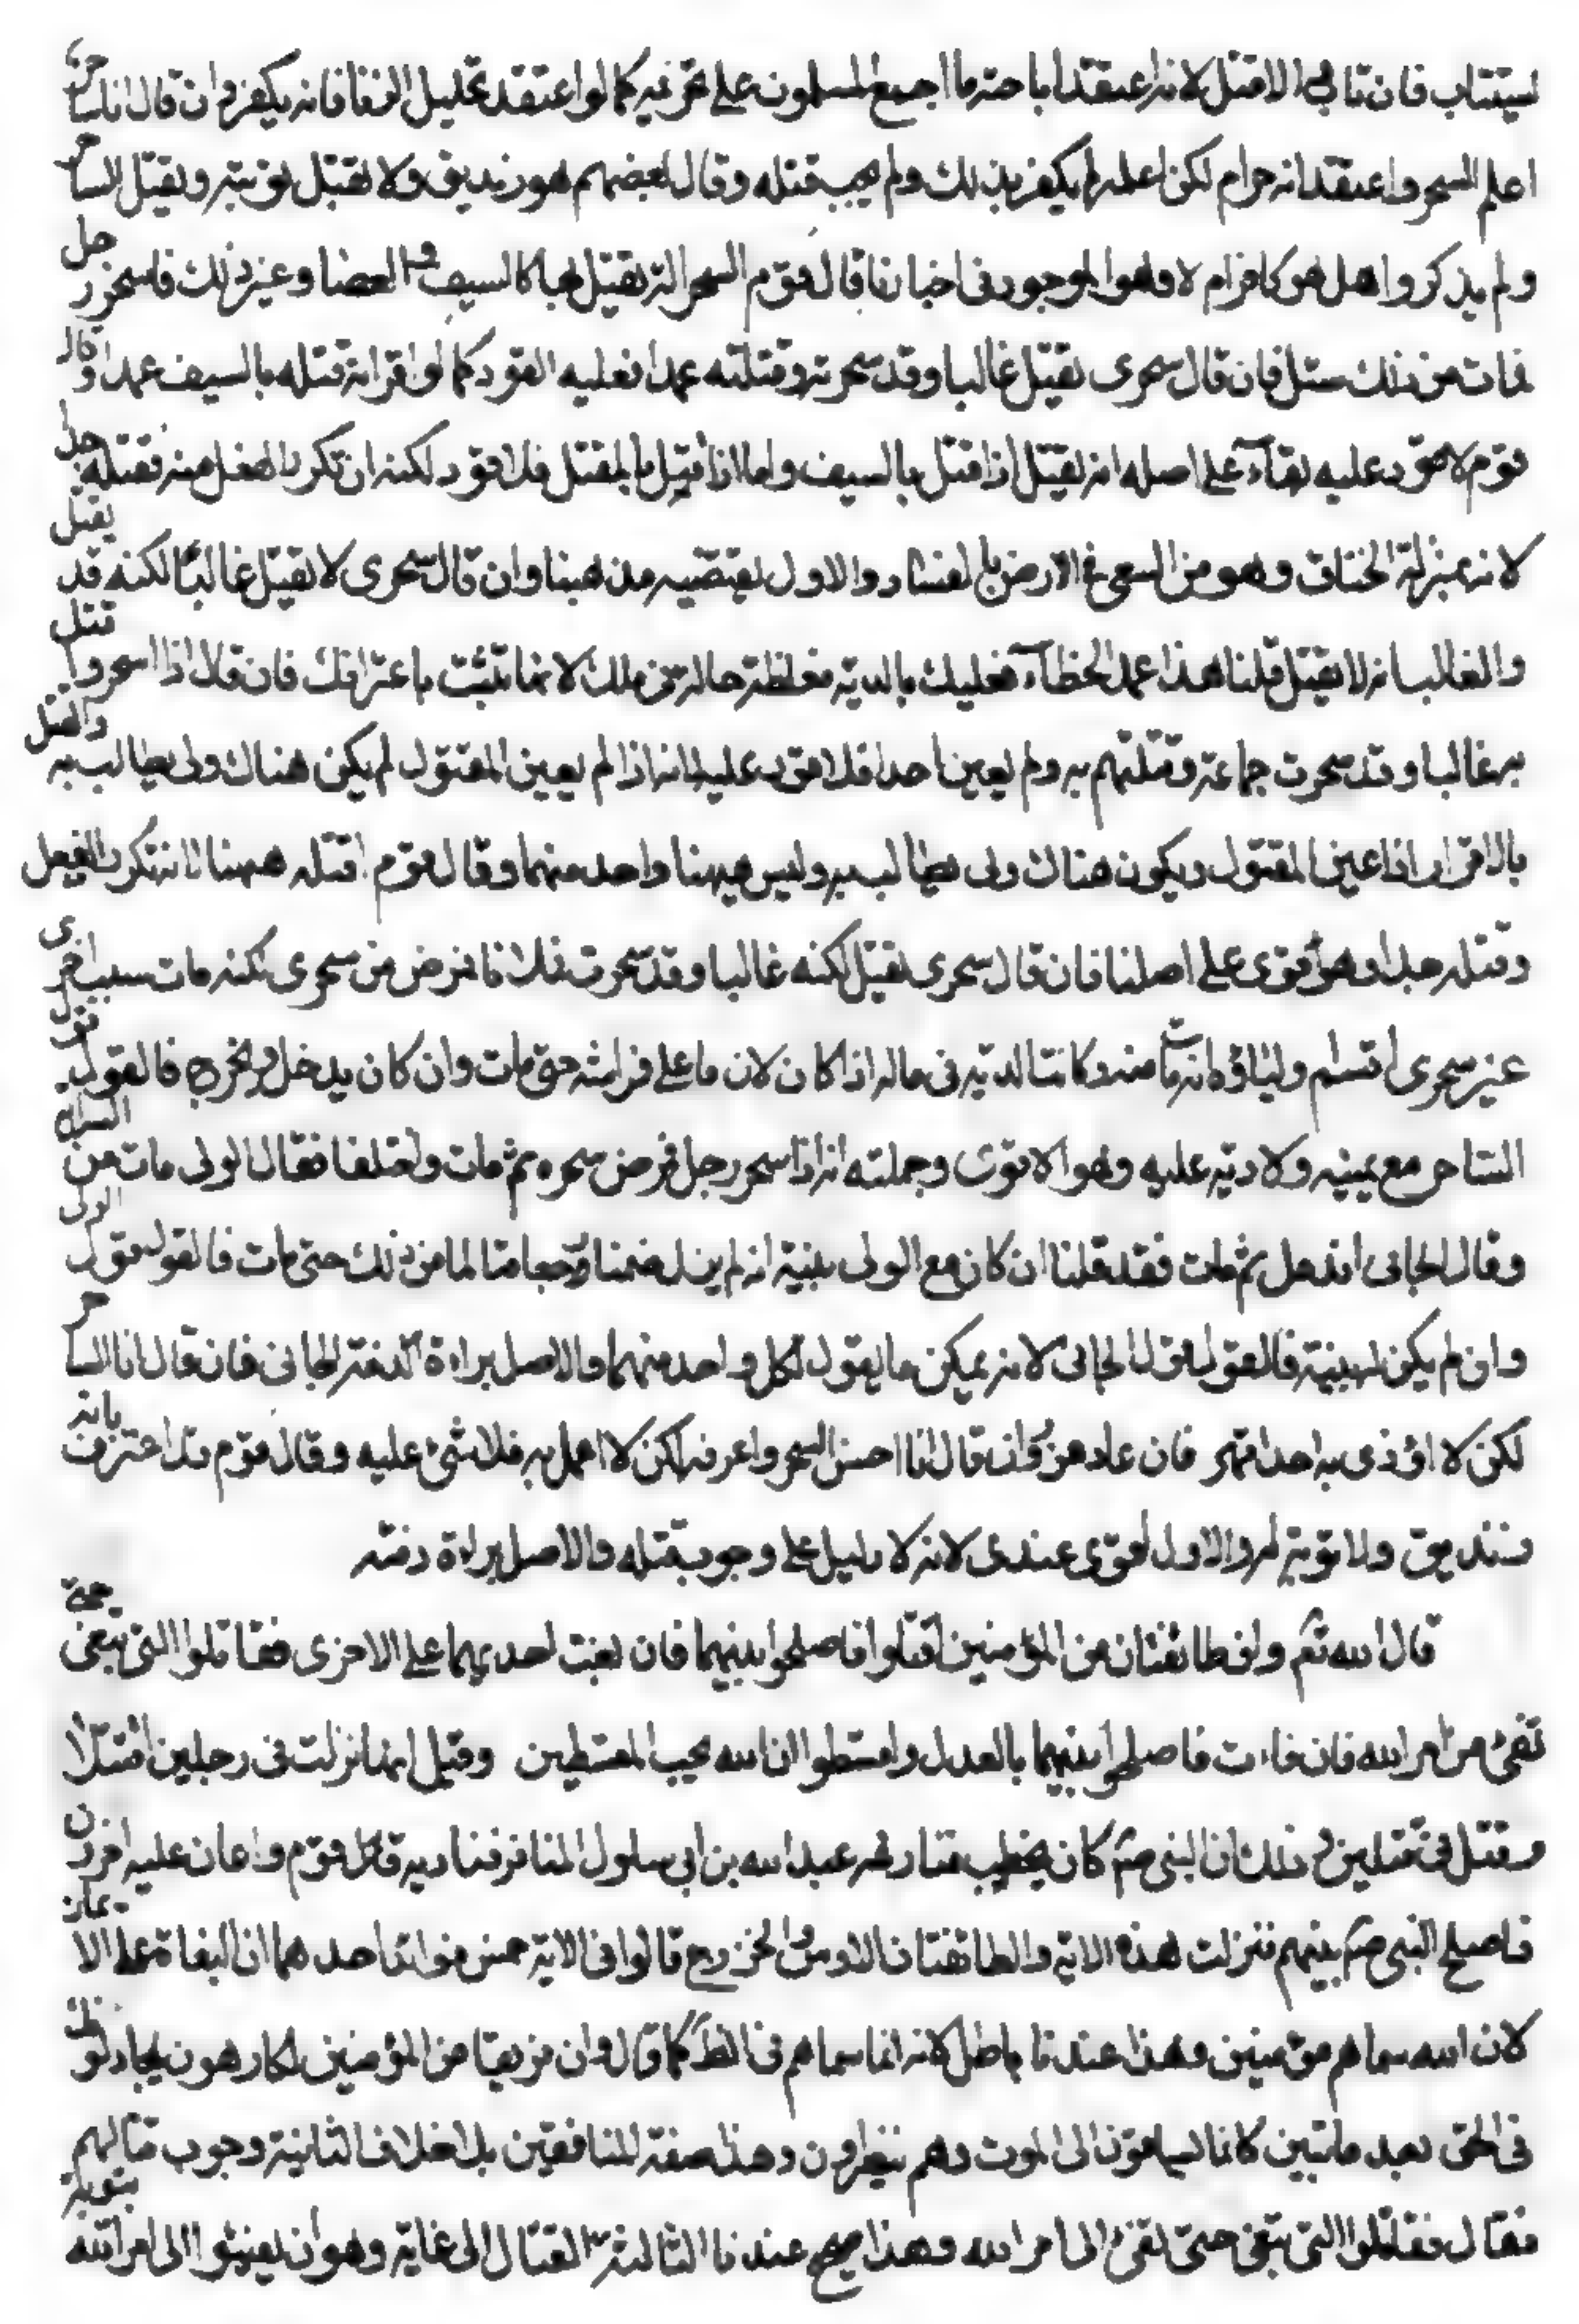 يستتاب فان تاب والا قتل لانه اعتقد اباحة ما اجمع المسلمون على تحريمه كما لو اعتقد تحليل الزنا فانه يكفر وان قال انا ساحر
اعلم السحر واعتقد انه حرام لكن اعمله لم يكفر بذلك ولم يجب قتله وقال بعضهم هو زنديق ولا تقبل توبته ويقتل الساحر
ولم يذكروا هل هو كافر ام لا وهو الموجود فى اخبارنا قال قوم السحر الة يقتل بها كالسيف والعصا وغير ذلك فاسحر رجل
فمات من ذلك سئل فان قال سحرى يقتل غالبا وقد سحرته وقتلته عمدا فعليه القود كما لو اقر انه قتله بالسيف عمدا وقال
قوم لا قود عليه بقاء على اصله انه يقتل اذا قتل بالسيف واما اذا قتل بالمثقل فلا قود لكنه ان تكرر الفعل منه فقتله رجل يقتل
لانه بمنزلة الخناق وهو من السعى فى الارض بالفساد والاول يقتضيه مذهبنا وان قال سحرى لا يقتل غالبا لكنه قد قتل
والغالب انه لا يقتل قلنا هذا عمد الخطاء فعليك بالدية مغلظة حالة فى ملك لانها تثبت باعترافك فان قال انا اسحر واقتل
به غالبا وقد سحرت جماعة وقتلتهم به ولم يعين احدا فلا قود عليه لانه اذا لم يعين المقتول لم يكن هناك ولى يطالب به والقتل
بالاقرار اذا عين المقتول ويكون هناك ولى يطالب به وليس ههنا واحد منهما وقال قوم اقتله ههنا لانه تكرر الفعل
وقتله حدا وهو اقوى على اصلنا فان قال سحرى يقتل لكنه غالبا وقد سحرت فلانا فمرض من سحرى لكنه مات بسبب اخرى
غير سحرى اقسم اولياؤه انه مات منه وكانت الدية فى ماله اذا كان لازما على فراشه حتى مات وان كان يدخل ويخرج فالقول قول
الساحر مع يمينه ولا دية عليه وهو الاقوى وجملته انه اذا سحر رجل فمرض سحره ثم مات واختلفا فقال الولى مات من السراية
وقال الجانى اندمل ثم مات فقد قلنا ان كان مع الولى بينة انه لم يزل ضمنا وجعا متالما من ذلك حتى مات فالقول قول الولى
وان لم يكن له بينة فالقول قول الجانى لانه يمكن ما يقول لكل واحد منهما والاصل براءة الذمة الجانى فان قال انا الساحر
لكن لا اؤذى به احدا فان عاد عزر وان قال انا احسن السحر واعرفه لكن لا اعمل به فلا شئ عليه وقال قوم قد اعترف بانه
زنديق ولا توبة له والاول اقوى عندى لانه لا دليل على وجوب قتله والاصل براءة ذمته
قال الله تعم وان طائفتان من المؤمنين اقتتلوا فاصلحوا بينهما فان بغت احديهما على الاخرى فقاتلوا التى تبغى حتى
تفئ من امر الله فان فاءت فاصلحوا بينهما بالعدل واقسطوا ان الله يحب المقسطين وقيل انها نزلت فى رجلين اقتتلا
وقتل فى قتلين وذلك ان النبى صم كان يخطب عبد الله بن ابى سلول المنافر قوم واعان عليه اخرون
فاصلح النبى صم بينهم فنزلت هذه الاية والطائفتان الاوس والخزرج قالوا فى الاية خمس فوائد احدها ان البغاة على الايمان
لان الله سماهم مؤمنين وهذا عندنا باطل لانه انما سماهم فى الظاهر كما قال وان فريقا من المؤمنين لكارهون يجادلونك
فى الحق بعد ما تبين كانما يساقون الى الموت وهم ينظرون وهذه صفة المنافقين بلا خلاف الثانية وجوب قتالهم
فقال فقاتلوا التى تبغى حتى تفئ الى امر الله وهذا صحيح عندنا الثالثة القتال الى غاية وهو ان يفيئوا الى امر الله بتوبة